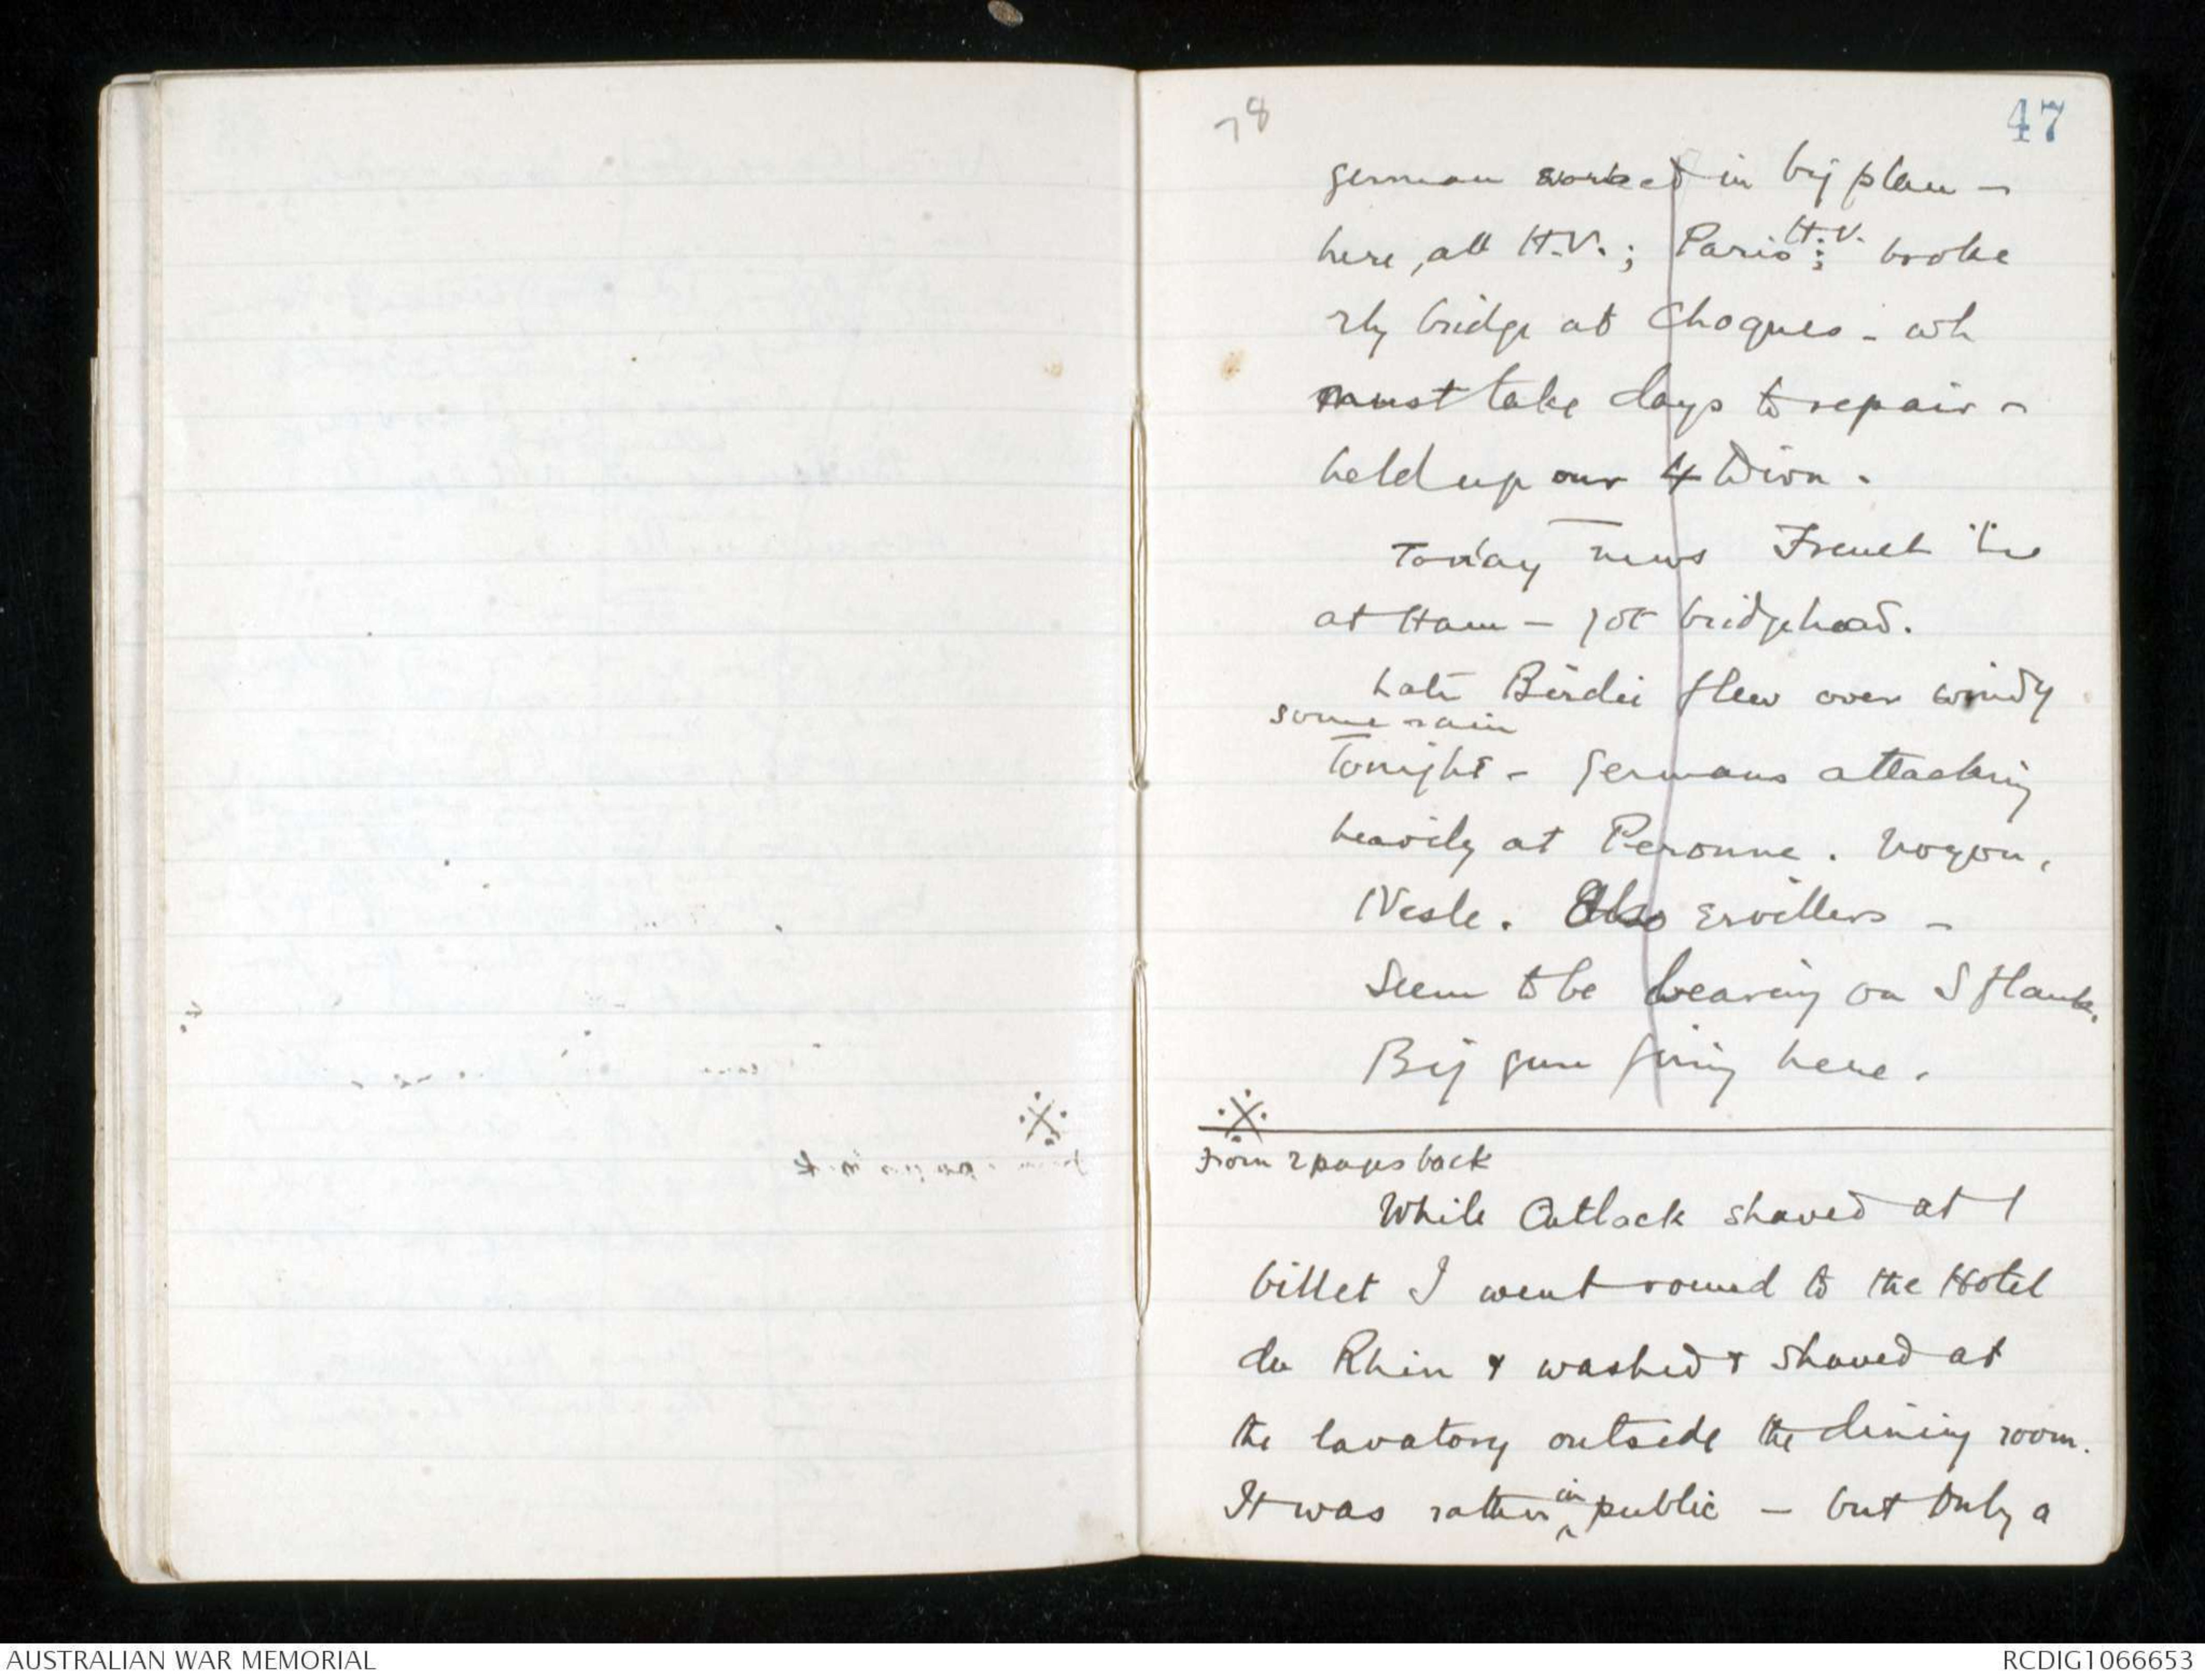 78
47
German worked in big plan –
here, all H.V.; Paris H.V.; broke
rly bridge at Choques – wh
must take days to repair –
held up our 4 Divn.
Today news French
at Ham – got bridgehead.
Late Birdie flew over windy
some rain
Tonight – Germans attacking
heavily at Peronne. Noyon,
Nesle. Also Ervillers –
Seem to be bearing on S flank.
Big gun firing here.
From 2 pages back
While Cutlack shaved at
billet I went round to the Hotel
du Rhin & washed & shaved at
the lavatory outside the dining room.
It was rather in public – but only a
AUSTRALIAN WAR MEMORIAL
RCDIG1066653